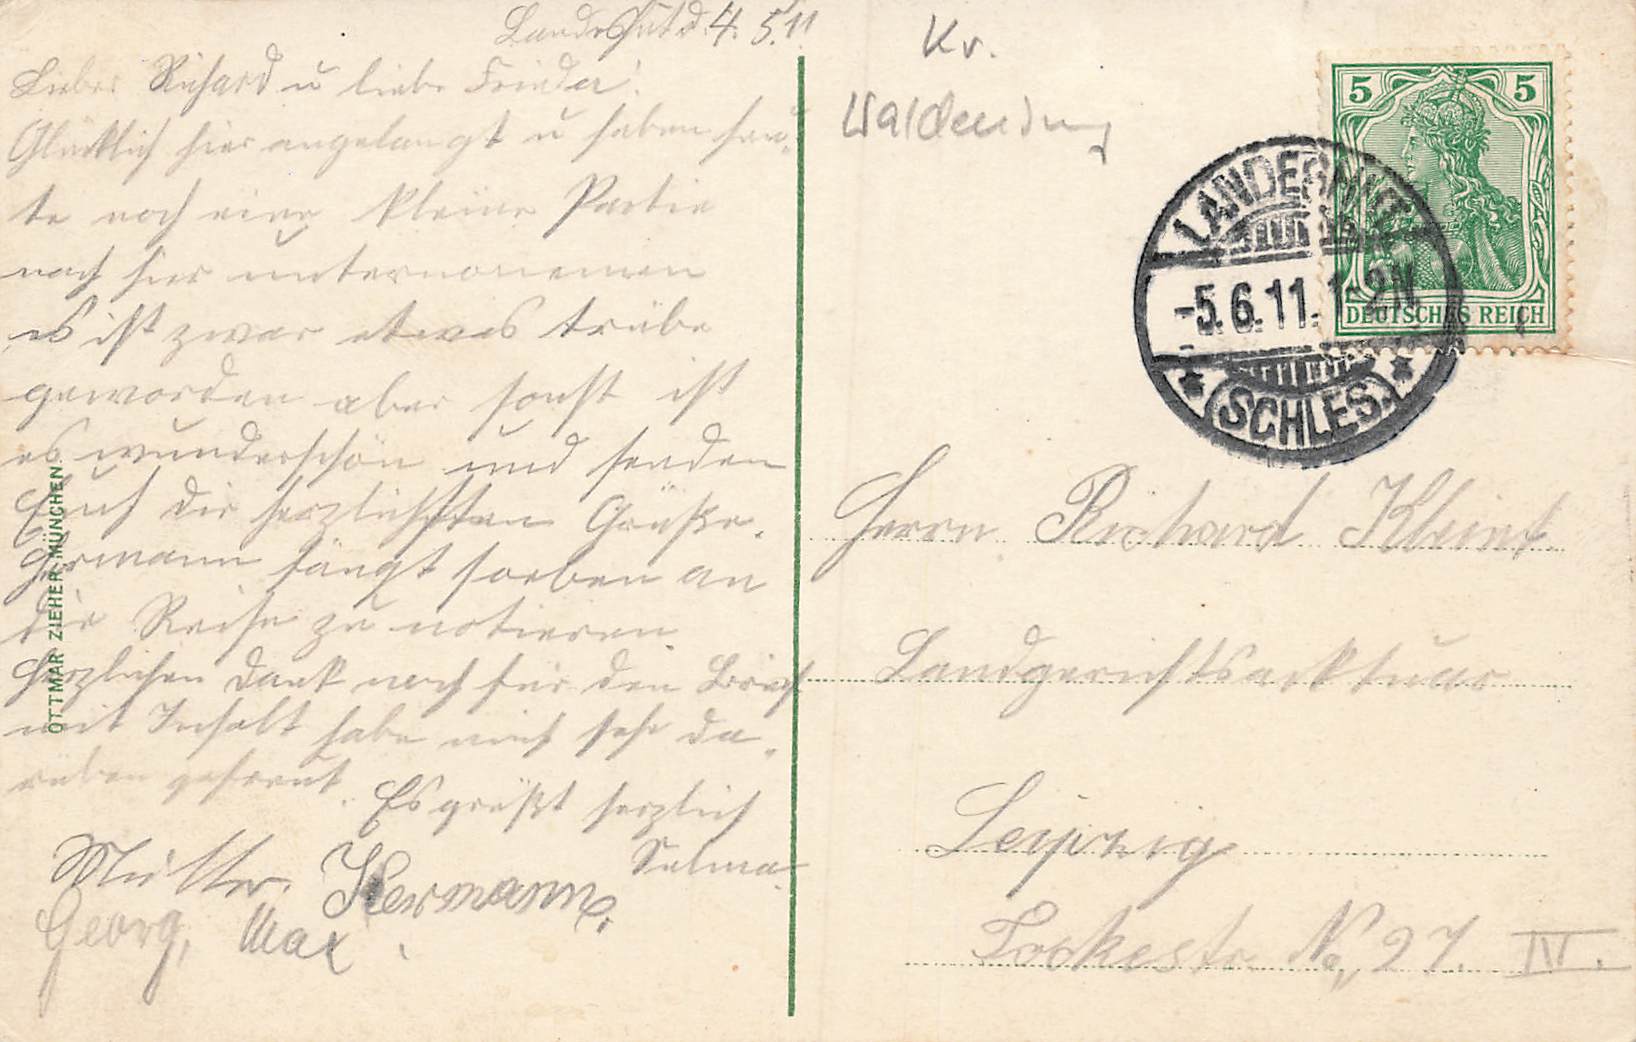 Landeshut d. 4. 5. 11
Lieber Richard u liebe Frieda!
Glücklich hier angelangt u haben heu-
te noch eine kleine Partie
nach hier unternommen
es ist zwar etwas trübe
geworden aber sonst ist
es wunderschön und senden
Euch die herzlichsten Grüße.
Hermann fängt soeben an
die Reise zu notieren
Herzlichen Dank noch für den Brief
mit Inhalt habe mich sehr da-
rüber gefreut. Es grüßt herzlich
Selma
Mutter. Hermann.
Georg, Max.
OTTMAR ZIEHER MÜNCHEN
Kr.
Waldenburg
5 5
DEUTSCHES REICH
LANDESHUT
-5.6.11. 1-2N.
* (SCHLES.) *
Herrn Richard Kleint
Landgerichtsaktuar
Leipzig
No 27. IV.